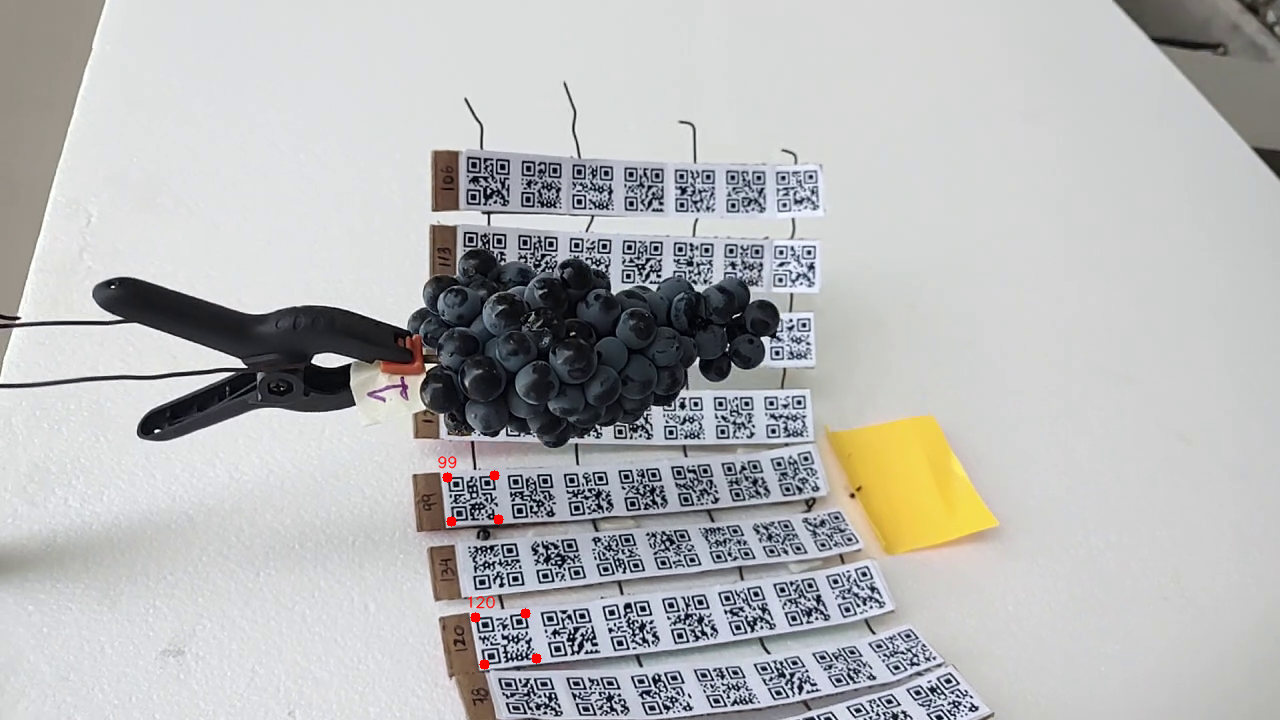 106
113
1
99
99
134
120
120
78